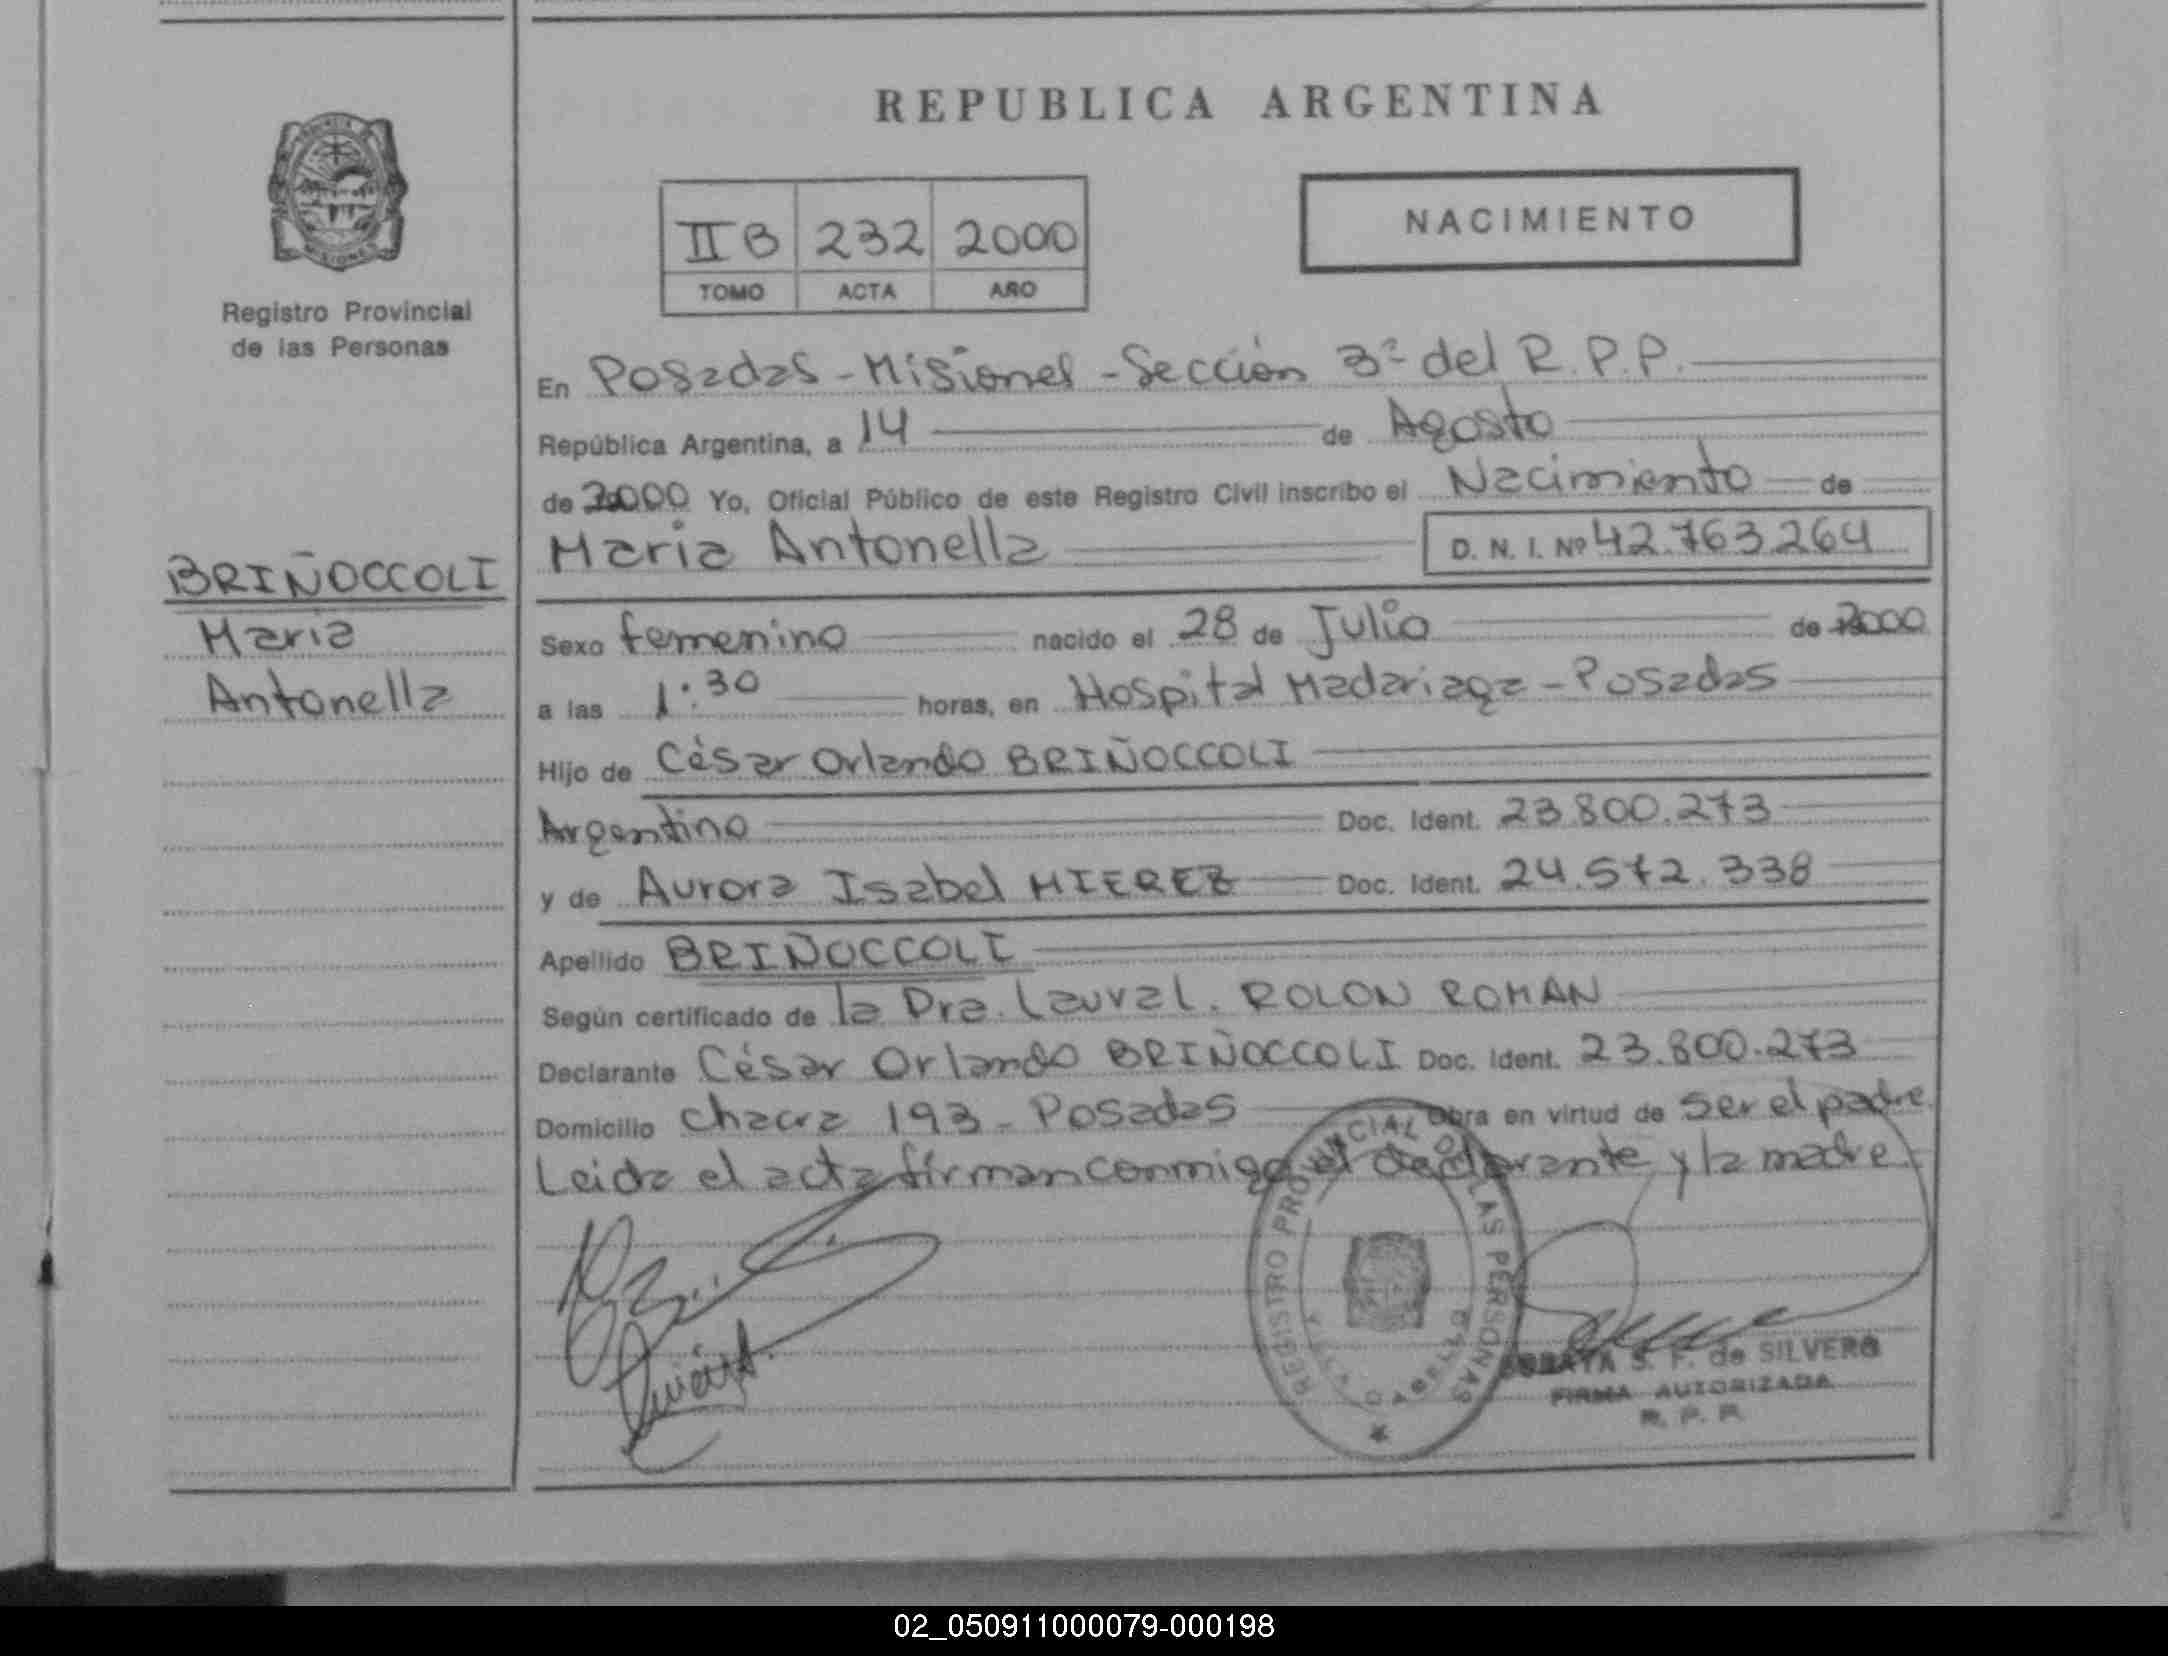 REPUBLICA ARGENTINA
PROVINCIA DE
MISIONES
Registro Provincial
de las Personas
II B 232 2000
TOMO ACTA AÑO
NACIMIENTO
En Posadas - Misiones - Sección 3ª del R.P.P.
República Argentina, a 14 de Agosto
de 2000 Yo, Oficial Público de este Registro Civil inscribo el Nacimiento de
Maria Antonella D. N. I. Nº 42.763.264
BRIÑOCCOLI
Maria
Antonella
Sexo femenino nacido el 28 de Julio de 2000
a las 1:30 horas, en Hospital Madariaga - Posadas
Hijo de César Orlando BRIÑOCCOLI
Argentino Doc. Ident. 23.800.273
y de Aurora Isabel MIEREZ Doc. Ident. 24.572.338
Apellido BRIÑOCCOLI
Según certificado de la Dra. Laura L. ROLON ROMAN
Declarante César Orlando BRIÑOCCOLI Doc. Ident. 23.800.273
Domicilio Chacra 193 - Posadas Obra en virtud de ser el padre
Leida el acta firman conmigo el declarante y la madre.
REGISTRO PROVINCIAL DE LAS PERSONAS
S. F. de SILVERO
FIRMA AUTORIZADA
R. P. P.
02_050911000079-000198